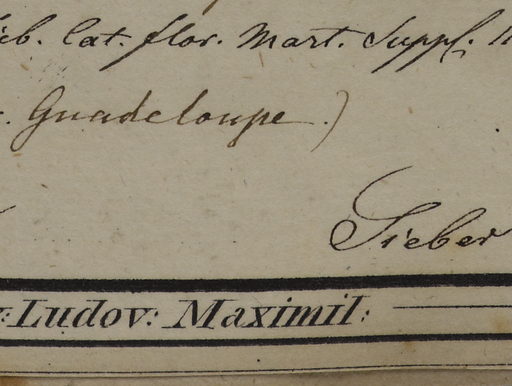 ieb. Cat. flor. Mart. Suppl.
. Guadeloupe.)
Sieber
: Ludov: Maximil: